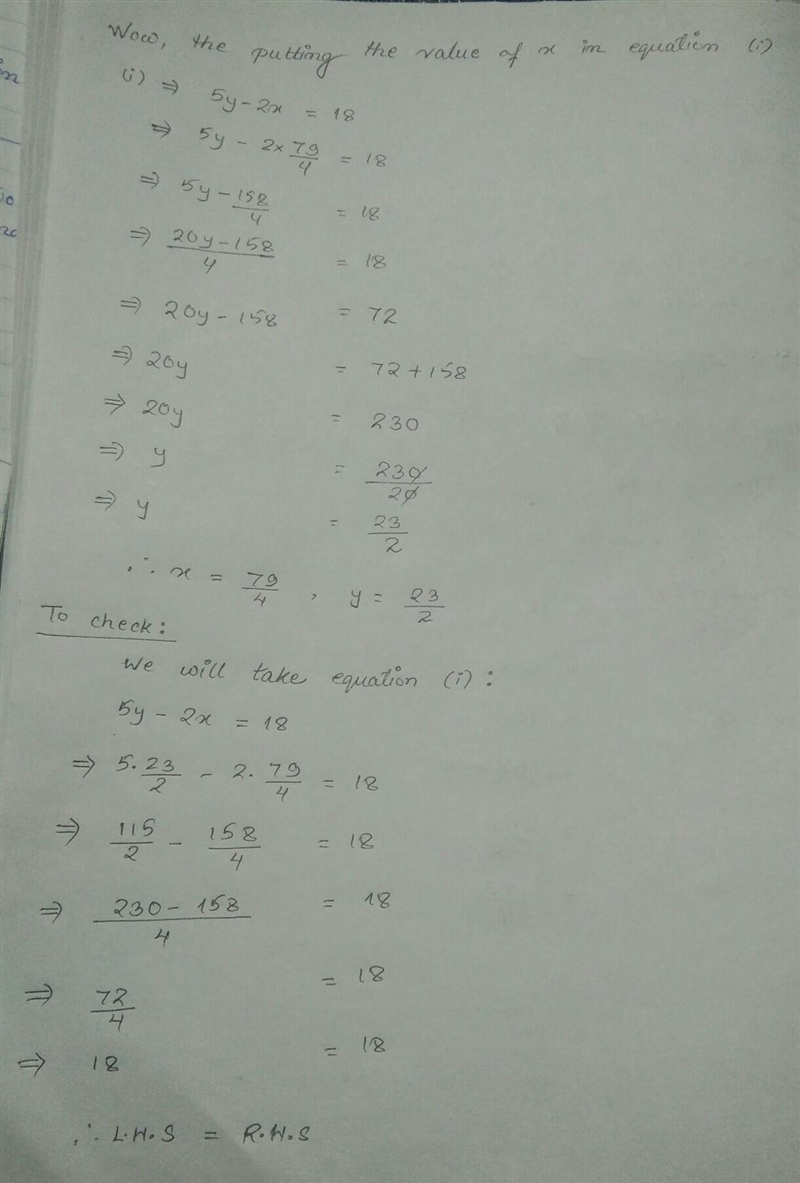 Now, the putting the value of x in equation (i)
(i) ⇒ 5y - 2x = 18
⇒ 5y - 2 × 79/4 = 18
⇒ 5y - 158/4 = 18
⇒ (20y - 158)/4 = 18
⇒ 20y - 158 = 72
⇒ 20y = 72 + 158
⇒ 20y = 230
⇒ y = 230/20
⇒ y = 23/2
∴ x = 79/4 , y = 23/2
To check:
We will take equation (i) :
5y - 2x = 18
⇒ 5. 23/2 - 2. 79/4 = 18
⇒ 115/2 - 158/4 = 18
⇒ (230 - 158)/4 = 18
⇒ 72/4 = 18
⇒ 18 = 18
∴ L.H.S = R.H.S